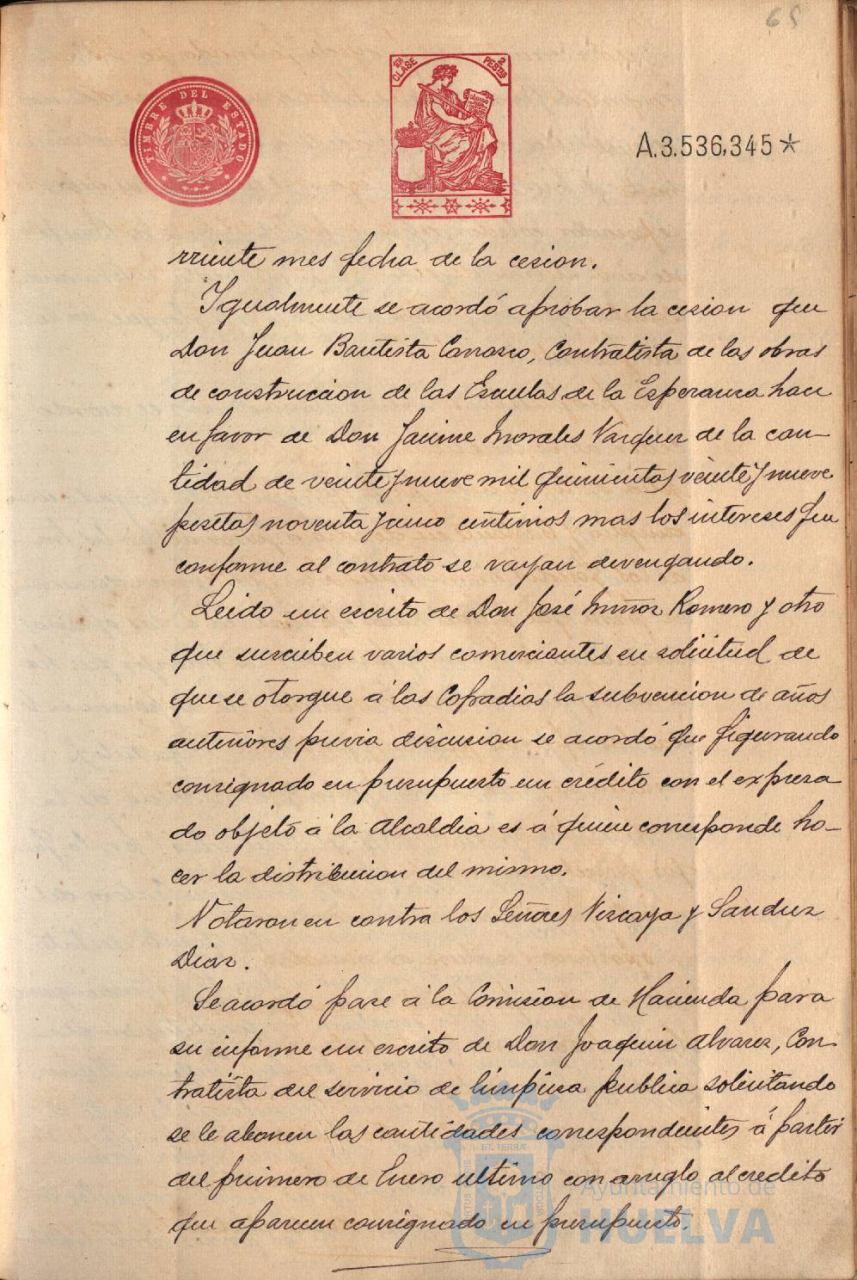 65
TIMBRE DEL ESTADO
CLASE
PESETAS
A.3.536,345*
rriente mes fecha de la cesion.
Igualmente se acordó aprobar la cesion que
Don Juan Bautista Carrasco, Contratista de las obras
de construccion de las Escuelas de la Esperanza hace
en favor de Don Jaime Morales Vazquez de la can-
tidad de veinte y nueve mil quinientas veinte y nueve
pesetas noventa y cinco centimos mas los intereses que
conforme al contrato se vayan devengando.
Leido un escrito de Don José Muñoz Romero y otro
que suscriben varios comerciantes en solicitud de
que se otorgue á las Cofradias la subvencion de años
anteriores previa discusion se acordó que figurando
consignado en presupuesto un crédito con el expresa
do objeto á la Alcaldia es á quien corresponde ha-
cer la distribucion del mismo.
Votaron en contra los Señores Vizcaya y Sanchez
Diaz.
Se acordó pase á la Comision de Hacienda para
su informe un escrito de Don Joaquin Alvarez, Con-
tratista del servicio de limpieza publica solicitando
se le abonen las cantidades correspondientes á partir
del primero de Enero ultimo con arreglo al credito
que aparece consignado en presupuesto.
Ayuntamiento de
HUELVA